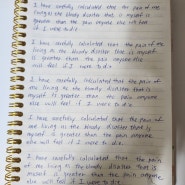 I have carefully calculated that the pain of
me living as the bloody disaster that is myself is
greater than the pain anyone else will feel
if I were to die.
I have carefully calculated that the pain of
me living as the bloody disaster that is myself
is greater than the pain anyone else will feel
if I were to die.
I have carefully calculated that the pain of
me living as the bloody disaster that is
myself is greater than the pain anyone
else will feel if I were to die.
I have carefully calculated that the pain of
me living as the bloody disaster that is myself
is greater than the pain anyone else
will feel if I were to die.
I have carefully calculated that the pain of
me living as the bloody disaster that is
myself is greater than the pain anyone
else will feel if I were to die.